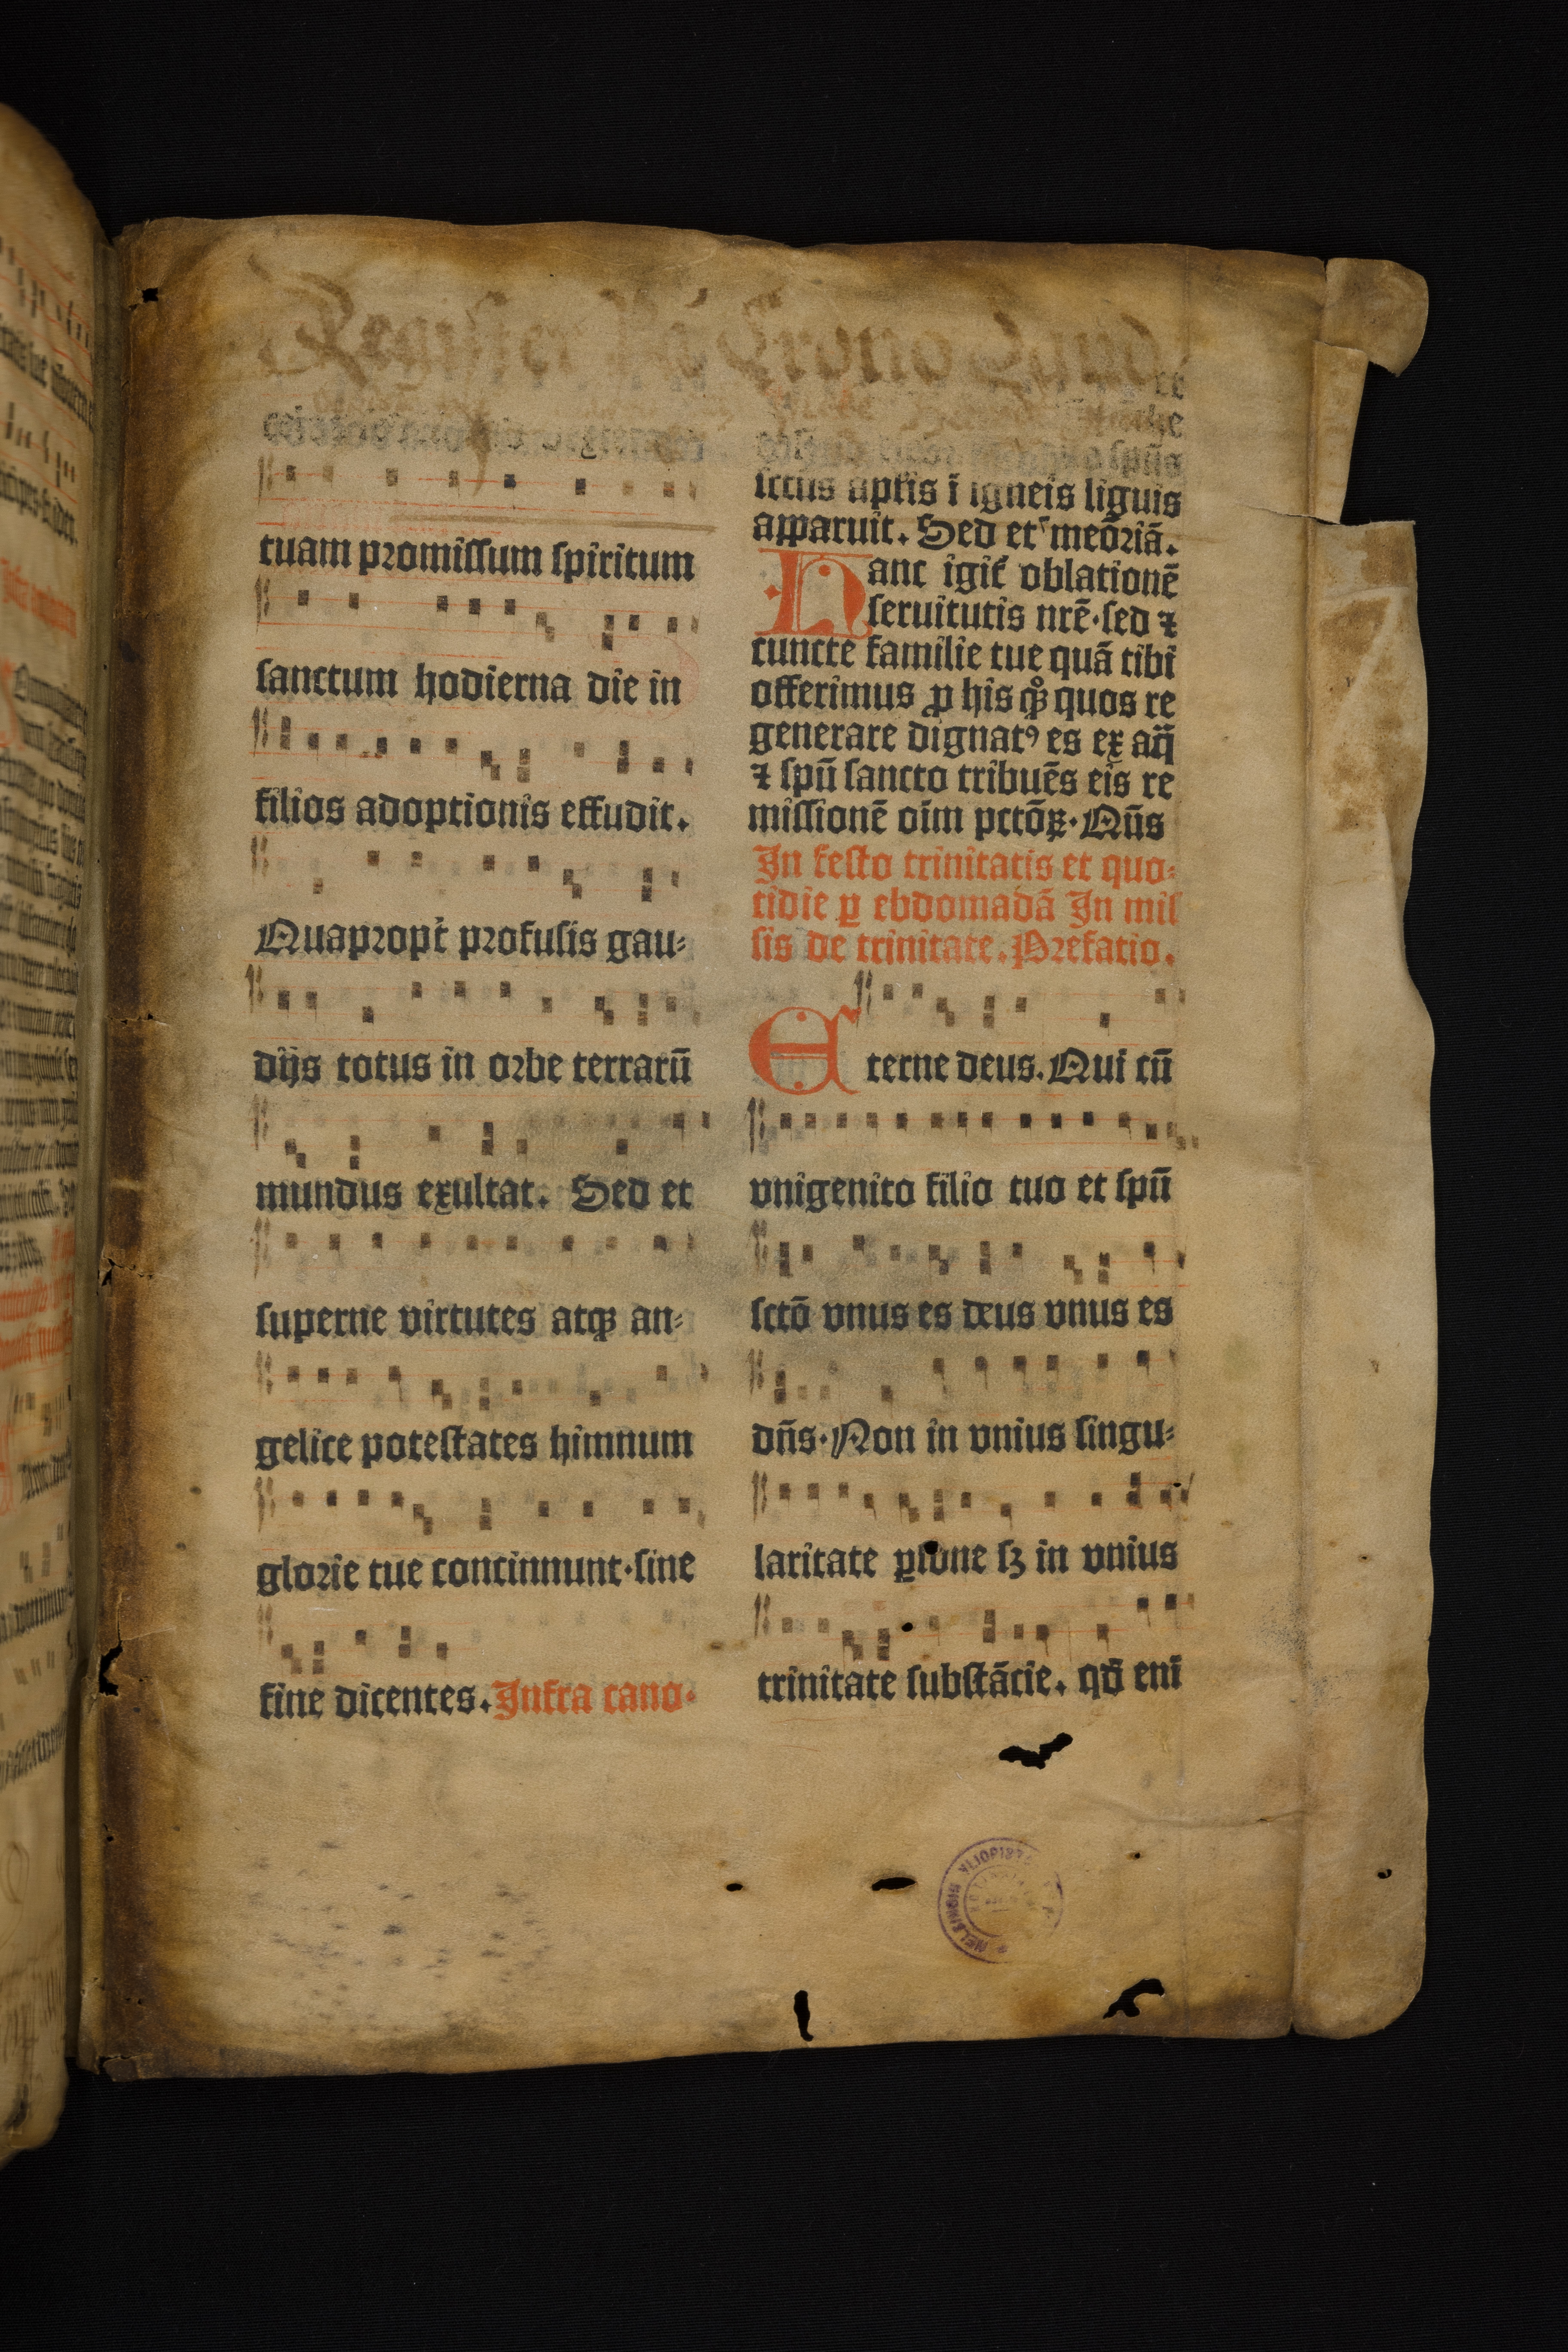 Register
tuam promissum spiritum
sanctum hodierna die in
filios adoptionis effudit.
Quapropt̛ profusis gau⸗
dijs totus in orbe terrarū
mundus exultat. Sed et
superne virtutes atqꝫ an⸗
gelice potestates himnum
glorie tue concinnunt·sine
fine dicentes. Infra cano·
re
spūs
sctus aptis ī igneis liguis
apparuit. Sed et meōriā.
Hanc igit̛ oblationē
seruitutis nrē·sed ⁊
cuncte familie tue quā tibi
offerimus ꝓ his qꝫ quos re
generare dignatꝰ es ex aq̄
⁊ spū sancto tribuēs eis re
missionē oīm pctōꝝ·Qūs
In festo trinitatis et quo⸗
tidie ꝑ ebdomadā In mis
sis de trinitate. Prefatio.
Eterne deus. Qui cū
vnigenito filio tuo et spū
sctō vnus es deus vnus es
dn̄s·Non in vnius singu⸗
laritate ꝑsone sꝫ in vnius
trinitate substācie. qd̄ enī